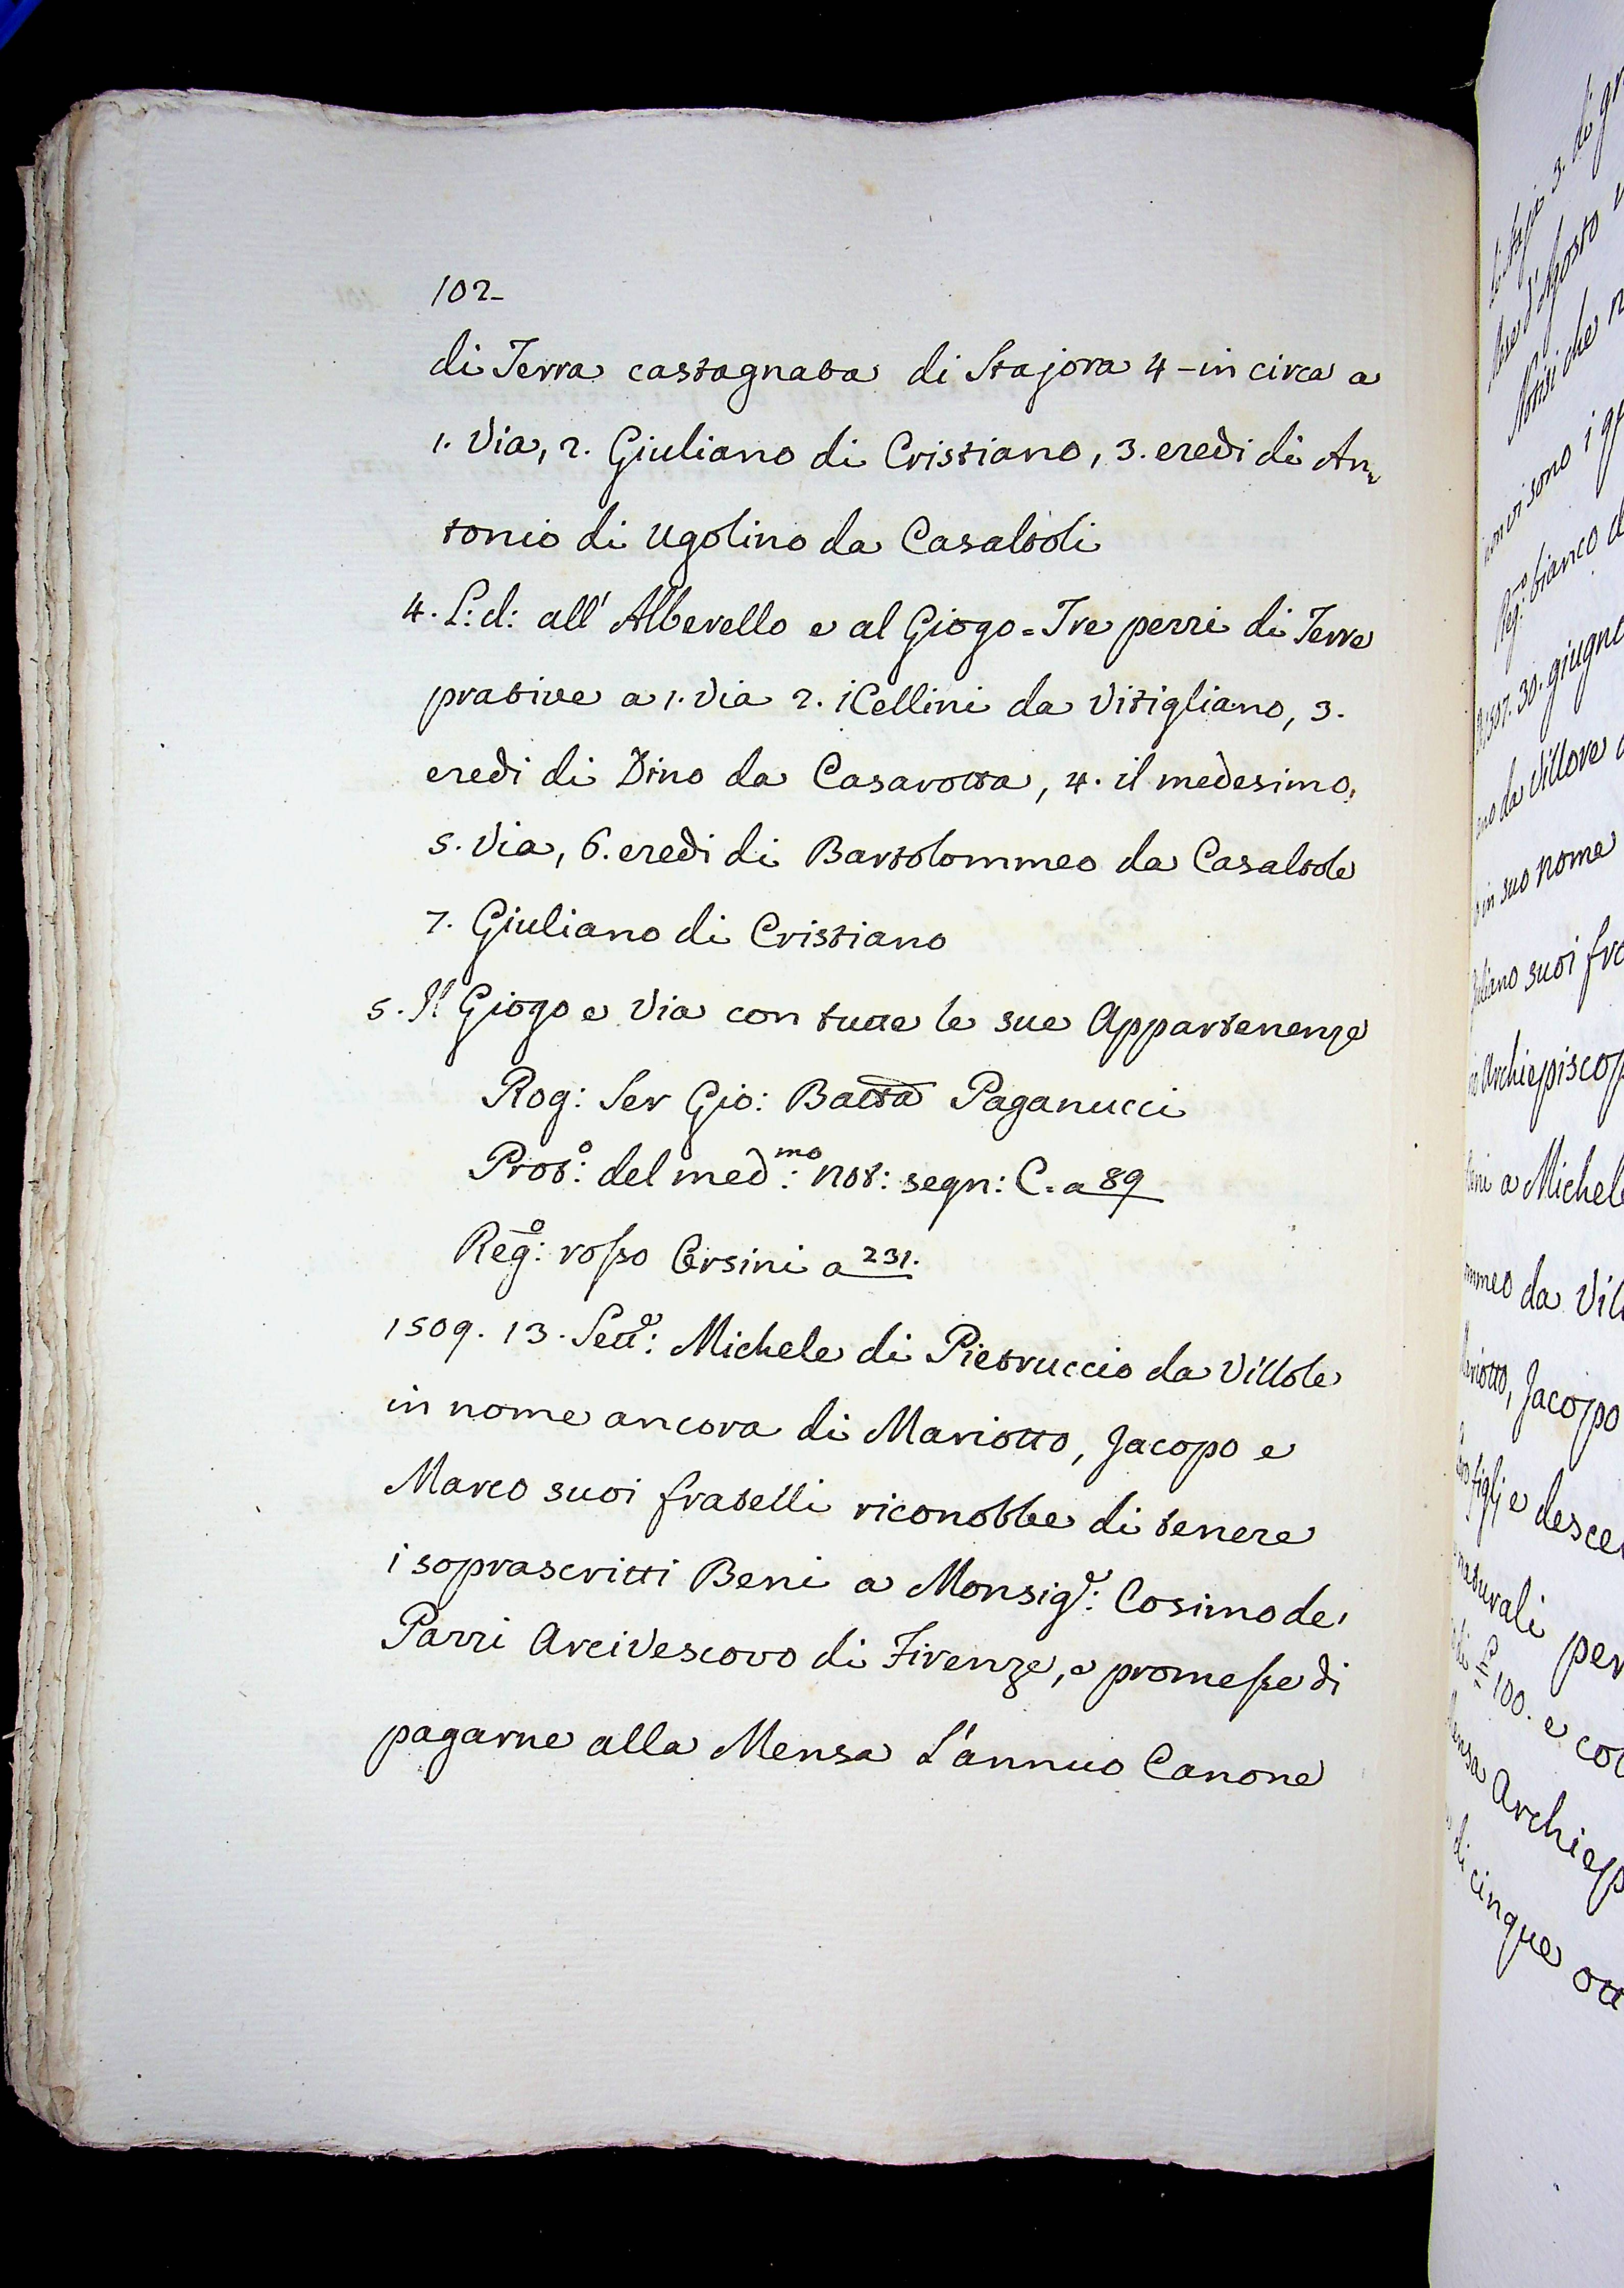 102
di Terra castagnata di Stajora 4 - in circa a
1. Via, 2. Giuliano di Cristiano, 3. eredi di An=
tonio di Ugolino da Casaltoli
4. L: d: all' Alberello e al Giogo = Tre pezzi di Terre
prative a 1. Via 2. i Cellini da Vitigliano, 3.
eredi di Dino da Casarotta, 4. il medesimo,
5. Via, 6. eredi di Bartolommeo da Casaltole
7. Giuliano di Cristiano
5. Il Giogo e Via con tutte le sue Appartenenze
Rog: Ser Gio: Batta Paganucci
Prot:o del med:mo Not: segn: C. a 89
Reg:o rosso Corsini a 231.
1509. 13. Sett:e Michele di Pietruccio da Villole
in nome ancora di Mariotto, Jacopo e
Marco suoi fratelli riconobbe di tenere
i soprascritti Beni a Monsig:e Cosimo de'
Pazzi Arcivescovo di Firenze, e promesse di
pagarne alla Mensa L'annuo Canone
di Stajo 3. di
Mese d'Agosto
Notisi che
non vi sono i
Reg:o bianco
1507. 30. giugno
da Villore
in suo nome
suoi
Archiepiscop
a Michel
da Vil
Jacopo
figlj e desce
naturali per
di 100. e
Archiep
di cinque ott